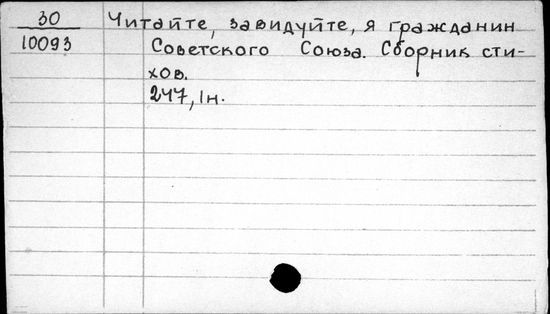 30 Читайте, завидуйте, я гражданин
10093 Советского Союза. Сборник сти-
хов.
247, 1н.